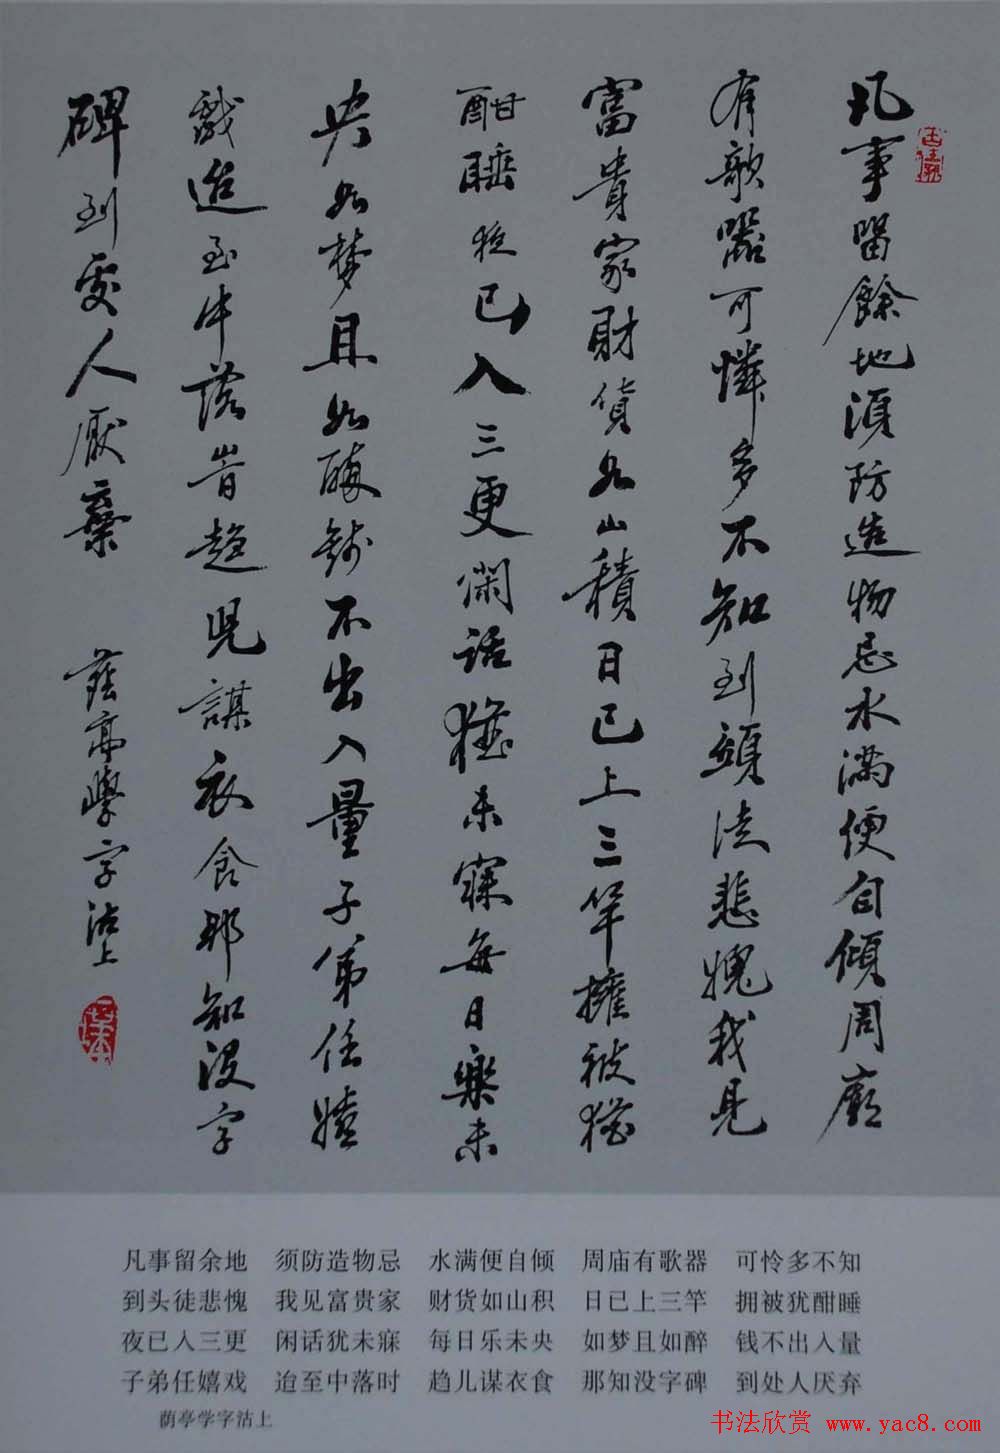 凡事留餘地須防造物忌水滿便自傾周廟
有歌器可憐多不知到頭徒悲愧我見
富貴家財貨如山積日已上三竿擁被猶
酣睡夜已入三更閑話猶未寐每日樂未
央如夢且如醉錢不出入量子弟任嬉
戲迨至中落時趨兒謀衣食那知沒字
碑到處人厭棄
蔭亭學字沽上
凡事留余地 须防造物忌 水满便自倾 周庙有歌器 可怜多不知
到头徒悲愧 我见富贵家 财货如山积 日已上三竿 拥被犹酣睡
夜已入三更 闲话犹未寐 每日乐未央 如梦且如醉 钱不出入量
子弟任嬉戏 迨至中落时 趋儿谋衣食 那知没字碑 到处人厌弃
荫亭学字沽上
书法欣赏 www.yac8.com